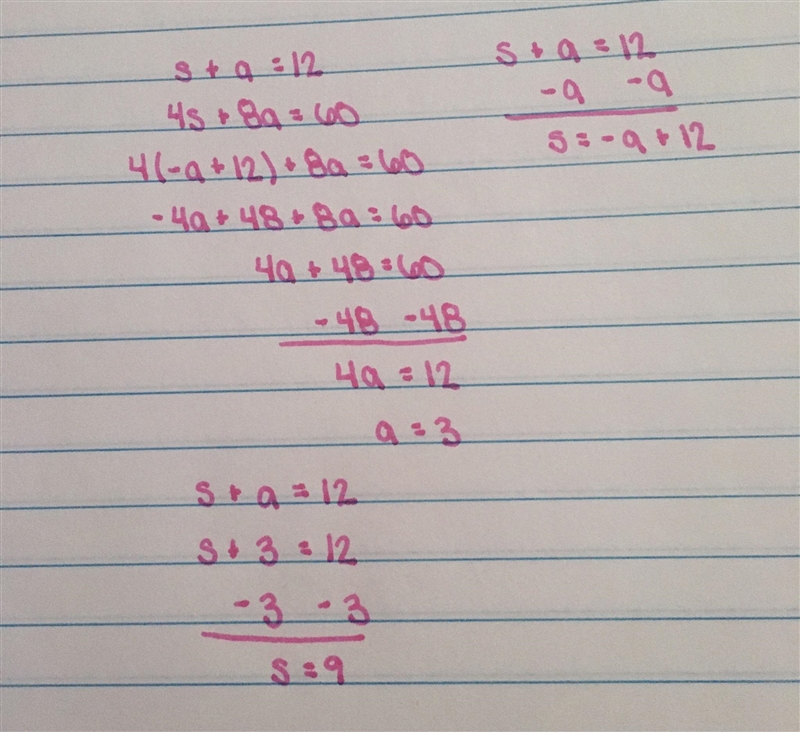 s + a = 12
4s + 8a = 60
4(-a + 12) + 8a = 60
-4a + 48 + 8a = 60
4a + 48 = 60
-48 -48
4a = 12
a = 3
s + a = 12
s + 3 = 12
-3 -3
s = 9
s + a = 12
-a -a
s = -a + 12